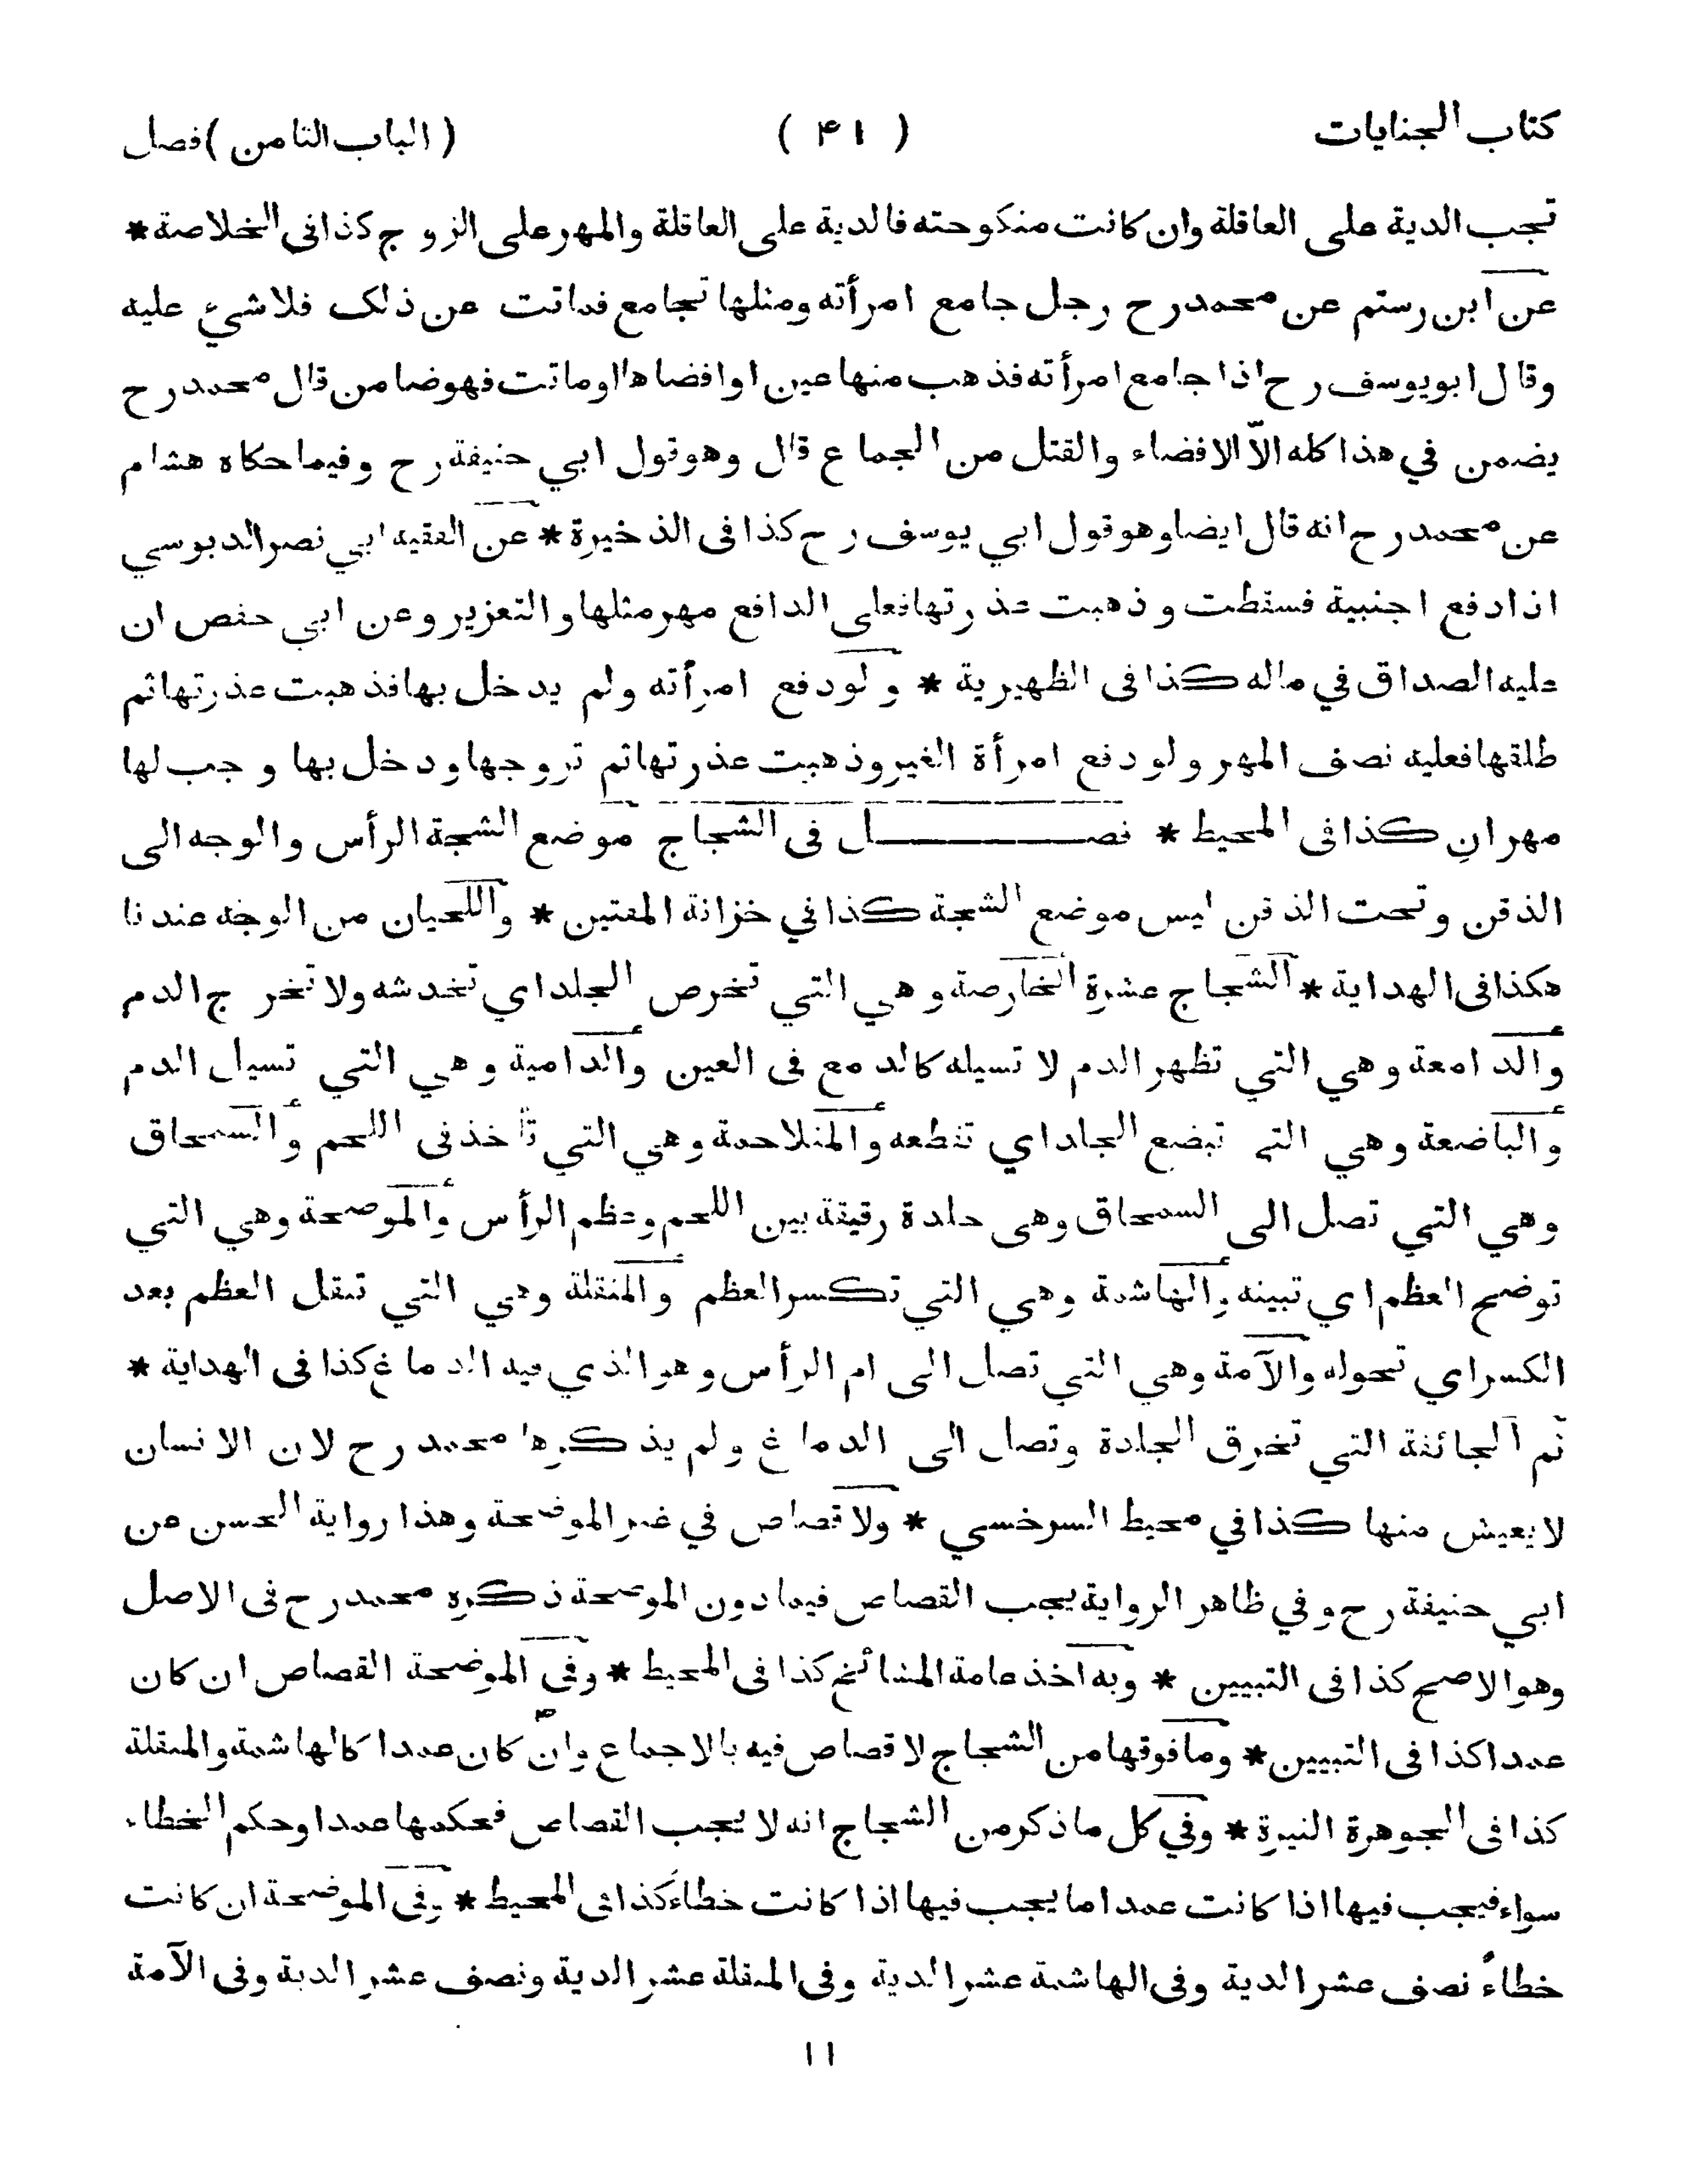 كتاب الجنايات ( ۴۱ ) ( الباب الثامن ) فصل
تجب الدية على العاقلة وان كانت منكوحته فالدية على العاقلة والمهر على الزوج كذا فى الخلاصة *
عن ابن رستم عن محمد رح رجل جامع امرأته ومثلها تجامع فماتت عن ذلك فلا شيء عليه
وقال ابو يوسف رح اذا جامع امرأته فذهب منها عين او افضاها او ماتت فهو ضامن قال محمد رح
يضمن في هذا كله الّا الافضاء والقتل من الجماع قال وهو قول ابي حنيفة رح وفيما حكاه هشام
عن محمد رح انه قال ايضا وهو قول ابي يوسف رح كذا فى الذخيرة * عن الفقيه ابي نصر الدبوسي
اذا دفع اجنبية فسقطت وذهبت عذرتها فعلى الدافع مهر مثلها والتعزير وعن ابي حفص ان
عليه الصداق في ماله كذا فى الظهيرية * ولو دفع امرأته ولم يدخل بها فذهبت عذرتها ثم
طلقها فعليه نصف المهر ولو دفع امرأة الغير وذهبت عذرتها ثم تزوجها ودخل بها وجب لها
مهران كذا فى المحيط * فصل فى الشجاج موضع الشجة الرأس والوجه الى
الذقن وتحت الذقن ليس موضع الشجة كذا في خزانة المفتين * واللحيان من الوجه عندنا
هكذا فى الهداية * الشجاج عشرة الخارصة وهي التي تخرص الجلد اي تخدشه ولا تخرج الدم
والدامعة وهي التي تظهر الدم لا تسيله كالدمع فى العين والدامية وهي التي تسيل الدم
والباضعة وهي التي تبضع الجلد اي تقطعه والمتلاحمة وهي التي تأخذ فى اللحم والسمحاق
وهي التي تصل الى السمحاق وهى جلدة رقيقة بين اللحم وعظم الرأس والموضحة وهي التي
توضح العظم اي تبينه والهاشمة وهي التي تكسر العظم والمنقلة وهي التي تنقل العظم بعد
الكسر اي تحوله والآمة وهي التي تصل الى ام الرأس وهو الذي فيه الدماغ كذا فى الهداية *
ثم الجائفة التي تخرق الجلدة وتصل الى الدماغ ولم يذكرها محمد رح لان الانسان
لا يعيش منها كذا في محيط السرخسي * ولا قصاص في غير الموضحة وهذا رواية الحسن عن
ابي حنيفة رح وفي ظاهر الرواية يجب القصاص فيما دون الموضحة ذكره محمد رح فى الاصل
وهو الاصح كذا فى التبيين * وبه اخذ عامة المشائخ كذا فى المحيط * وفى الموضحة القصاص ان كان
عمدا كذا فى التبيين * وما فوقها من الشجاج لا قصاص فيه بالاجماع وان كان عمدا كالهاشمة والمنقلة
كذا فى الجوهرة النيرة * وفي كل ما ذكر من الشجاج انه لا يجب القصاص فحكمها عمدا وحكم الخطاء
سواء فيجب فيها اذا كانت عمدا ما يجب فيها اذا كانت خطاءً كذا فى المحيط * وفى الموضحة ان كانت
خطاءً نصف عشر الدية وفى الهاشمة عشر الدية وفى المنقلة عشر الدية ونصف عشر الدية وفى الآمة
۱۱